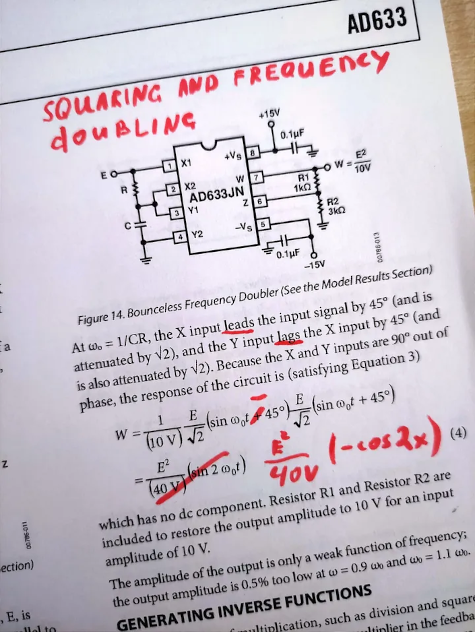 AD633
SQUARING AND FREQUENCY
dOUBLING
+15V
0.1µF
E
1 X1
+VS 8
W = E2
10V
R
2 X2
W 7
R1
1kΩ
AD633JN
3 Y1
Z 6
R2
3kΩ
C
4 Y2
–VS 5
0.1µF
–15V
00786-013
Figure 14. Bounceless Frequency Doubler (See the Model Results Section)
At ωo = 1/CR, the X input leads the input signal by 45° (and is
attenuated by √2), and the Y input lags the X input by 45° (and
is also attenuated by √2). Because the X and Y inputs are 90° out of
phase, the response of the circuit is (satisfying Equation 3)
W = 1/(10 V) E/√2 (sin ωot - 45°) E/√2 (sin ωot + 45°)
= E²/(40 V) (sin 2 ωot) E²/40V (-cos2x) (4)
which has no dc component. Resistor R1 and Resistor R2 are
included to restore the output amplitude to 10 V for an input
amplitude of 10 V.
The amplitude of the output is only a weak function of frequency;
the output amplitude is 0.5% too low at ω = 0.9 ωo and ωo = 1.1 ωo.
GENERATING INVERSE FUNCTIONS
multiplication, such as division and square
in the feedba
a
z
00786-011
ection)
, E, is